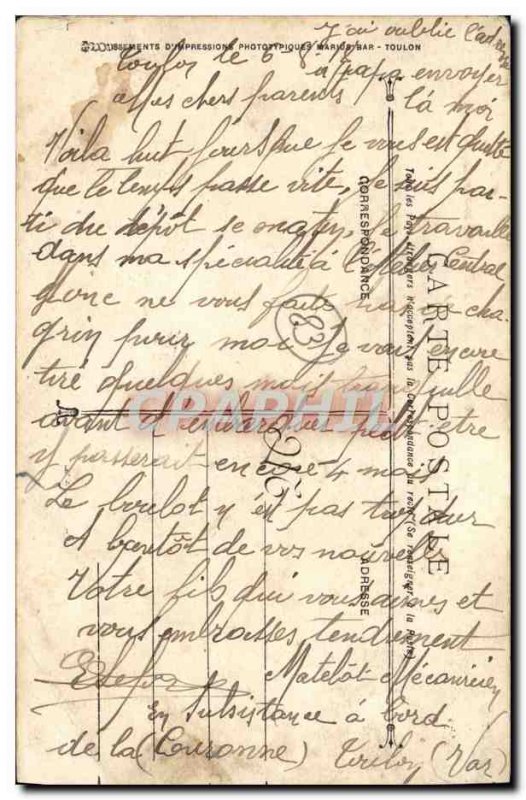 J'ai oublié
ÉTABLISSEMENTS D'IMPRESSIONS PHOTOTYPIQUES MARIUS BAR - TOULON
Toulon le 6-
à papa envoyer
Mes chers parents
là moi
Voilà huit jours que je vous est quitté
que le temps passe vite, je suis par-
ti du dépôt se matin, je travaille
dans ma spécialité à l'Atelier Central
donc ne vous faite pas de cha-
grin pour moi je vais encore
tiré quelques mois tranquille
avant d'embarquer peut être
y passerait encore 4 mois
Le boulot y est pas trop dur
A bientôt de vos nouvelles
Votre fils qui vous aimes et
vous embrasses tendrement
Matelot Mécanicien
En subsistance à bord
de la (Couronne) Toulon (Var)
83
CARTE POSTALE
Tous les Pays étrangers n'acceptent pas la Correspondance au recto (Se renseigner à la Poste)
CORRESPONDANCE
ADRESSE
DELCAMPHIL